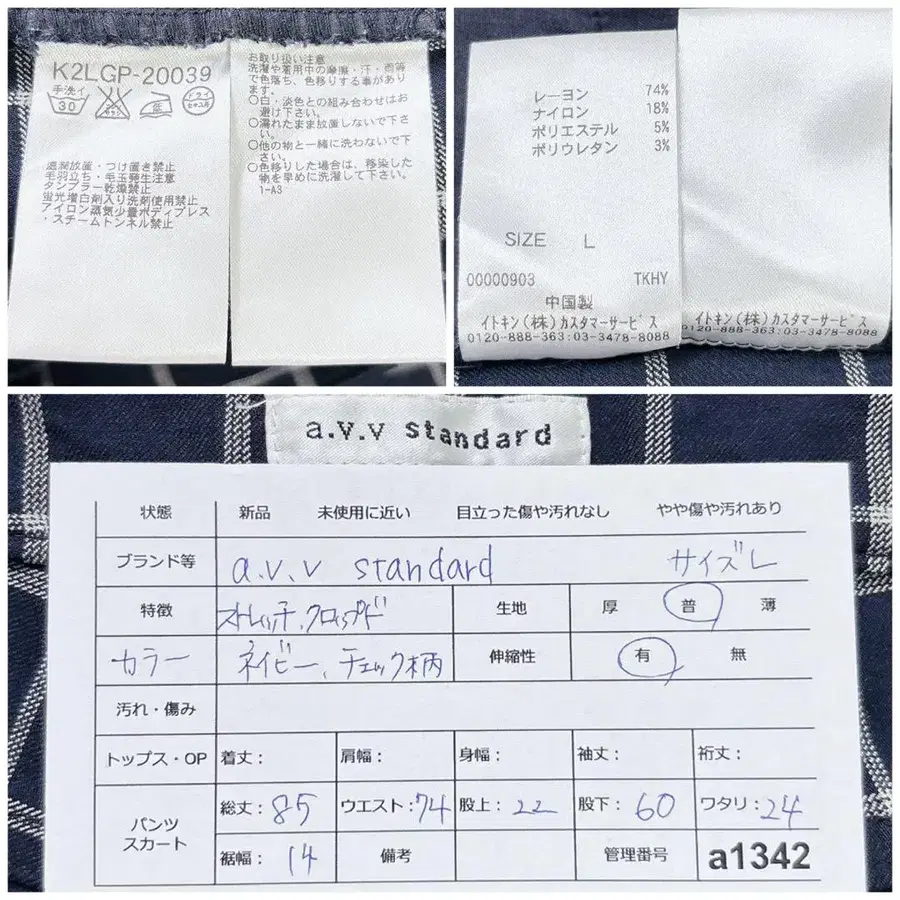 K2LGP-20039
手洗イ
30
エンソ サラシ
低
ドライ
セキユ系
遠潮放産・つけ置き禁止
毛羽立ち・毛玉発生注意
タンブラー乾燥禁止
蛍光増白剤入り洗剤使用禁止
アイロン蒸気少量ボディプレス
・スチームトンネル禁止
お取り扱い注意
洗濯や着用中の摩擦・汗・雨等
で色落ち、色移りする事があり
ます。
○白・淡色との組み合わせはお
避け下さい。
○濡れたまま放置しないで下さ
い。
○他の物と一緒に洗わないで下
さい。
○色移りした場合は、移染した
物を早めに洗濯して下さい。
1-A3
レーヨン 74%
ナイロン 18%
ポリエステル 5%
ポリウレタン 3%
SIZE L
00000903 TKHY
中国製
イトキン(株)カスタマーサービス
0120-888-363:03-3478-8088
イトキン(株)カスタマーサービス
0120-888-363:03-3478-8088
a.v.v standard
状態 新品 未使用に近い 目立った傷や汚れなし やや傷や汚れあり
ブランド等 a.v.v standard サイズL
特徴 ストレッチ、クロップド 生地 厚 普 薄
カラー ネイビー、チェック柄 伸縮性 有 無
汚れ・傷み
トップス・OP 着丈： 肩幅： 身幅： 袖丈： 裄丈：
パンツ スカート 総丈：85 ウエスト：74 股上：22 股下：60 ワタリ：24
裾幅：14 備考 管理番号 a1342